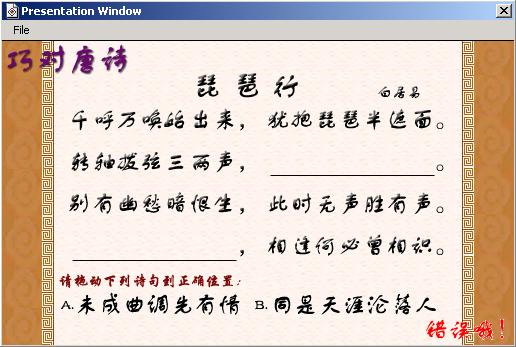 Presentation Window
File
巧对唐诗
琵琶行 白居易
千呼万唤始出来，犹抱琵琶半遮面。
转轴拨弦三两声，____________。
别有幽愁暗恨生，此时无声胜有声。
____________，相逢何必曾相识。
请拖动下列诗句到正确位置：
A. 未成曲调先有情 B. 同是天涯沦落人
错误哦！